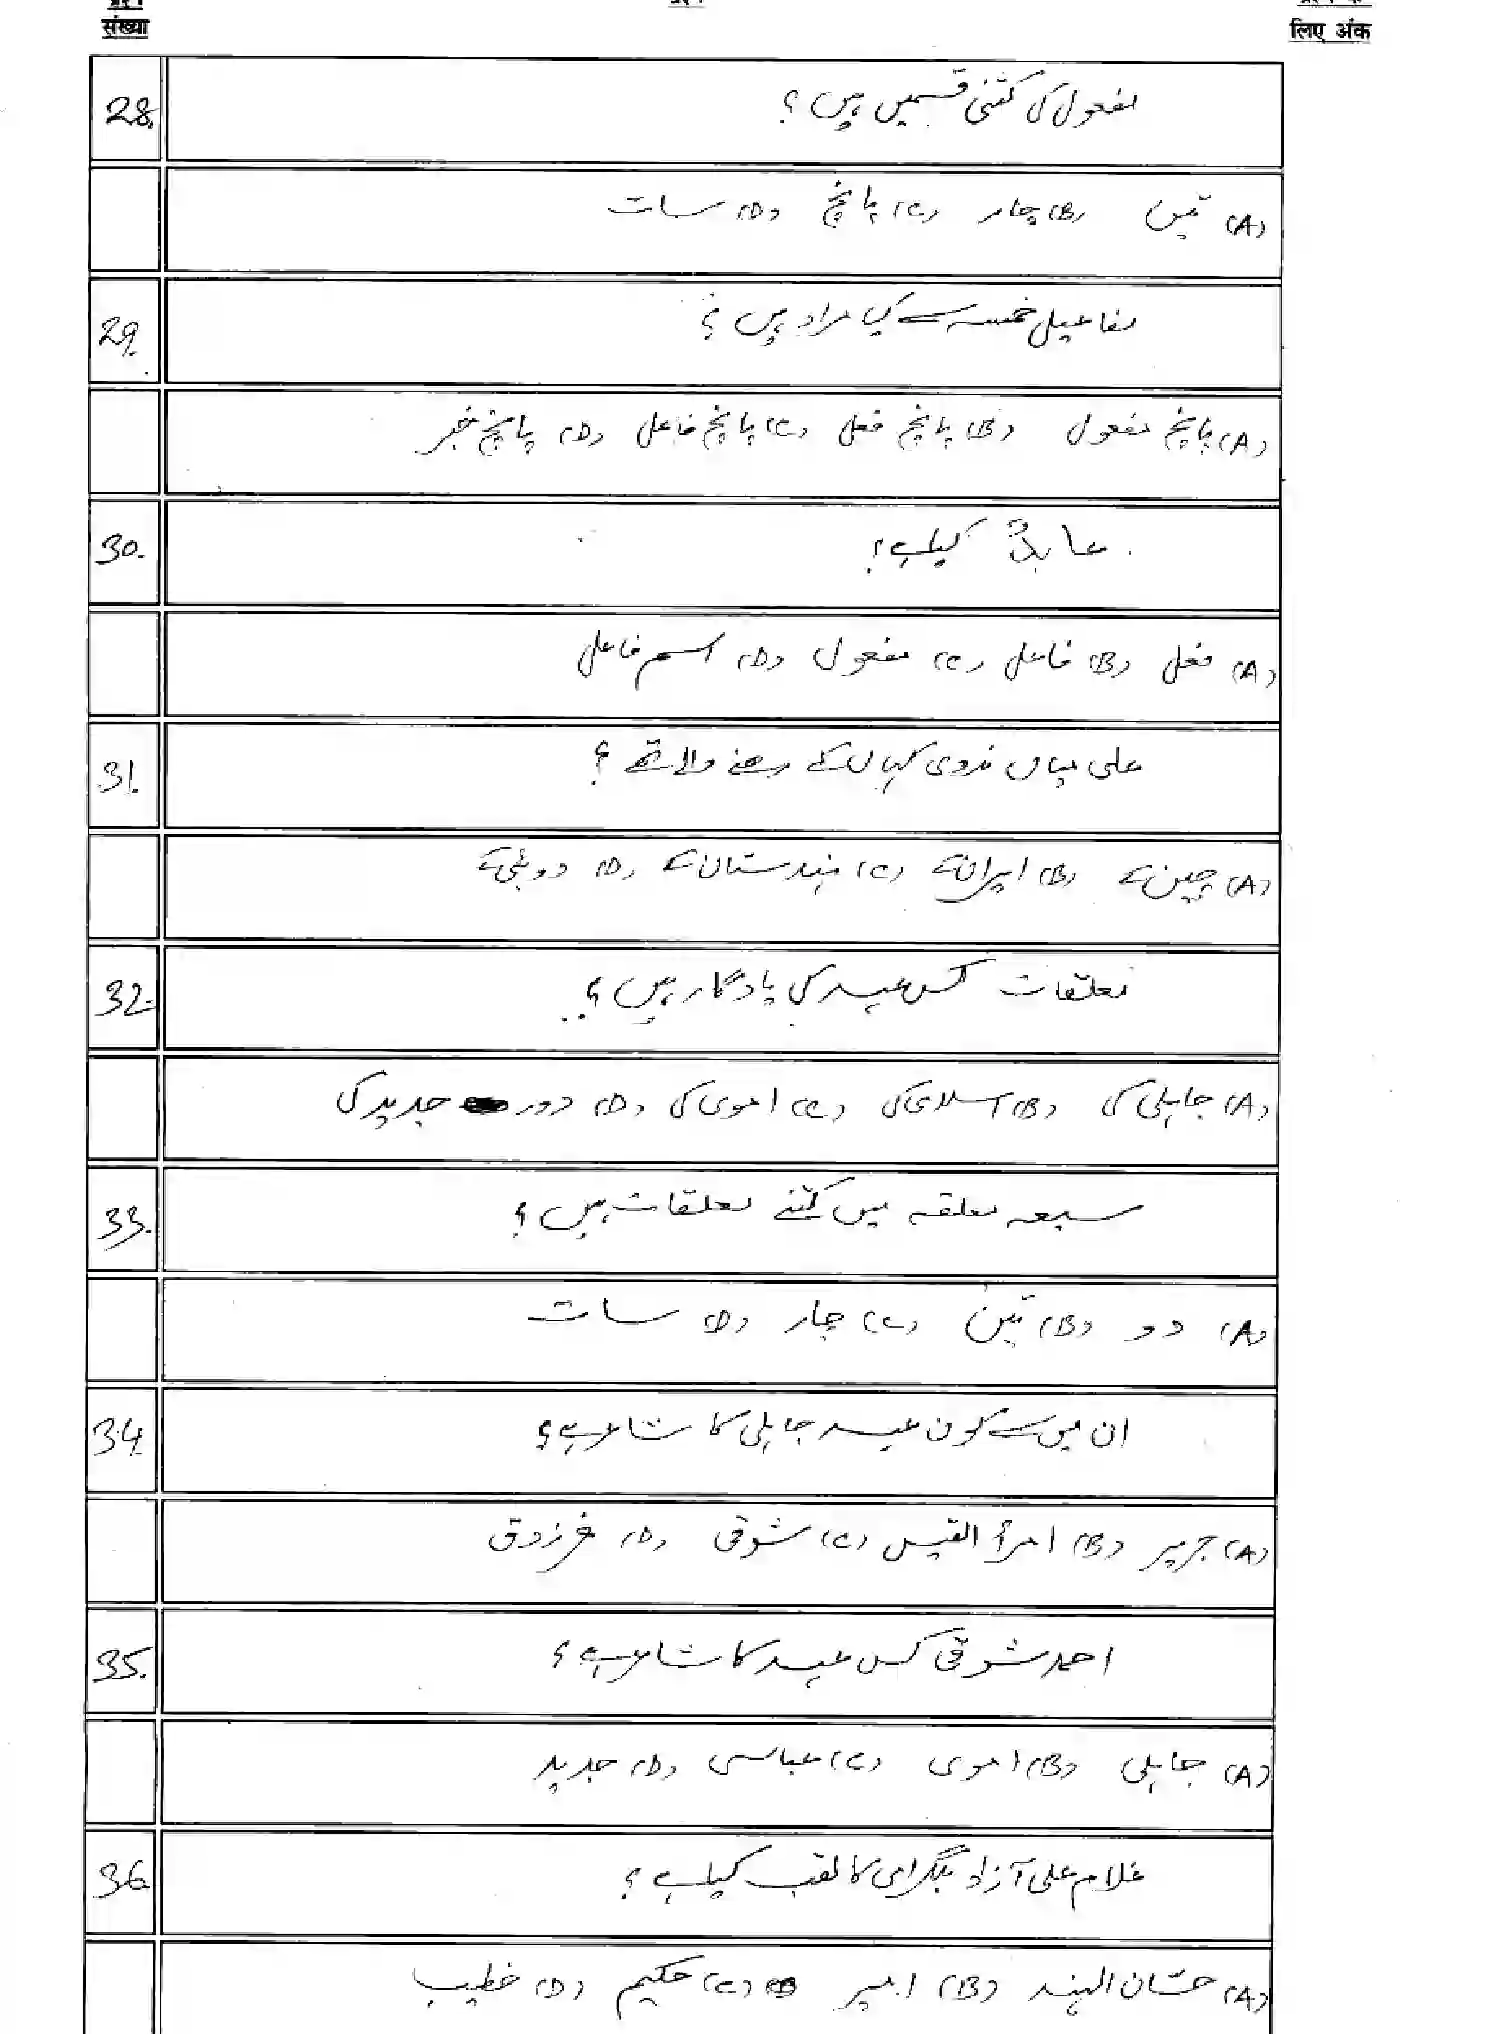 संख्या
लिए अंक
28. مفعول کی کتنی قسمیں ہیں ؟
(A) تین (B) چار (C) پانچ (D) سات
29. مفاعیل خمسہ سے کیا مراد ہیں ؟
(A) پانچ مفعول (B) پانچ فعل (C) پانچ فاعل (D) پانچ خبر
30. عابدٌ کیا ہے ؟
(A) فعل (B) فاعل (C) مفعول (D) اسم فاعل
31. علی میاں ندوی کہاں کے رہنے والے تھے ؟
(A) چین کے (B) ایران کے (C) ہندستان کے (D) دوبئی کے
32. معلقات کس عہد کی یادگار ہیں ؟
(A) جاہلی کی (B) اسلامی کی (C) اموی کی (D) دور جدید کی
33. سبعہ معلقہ میں کتنے معلقات ہیں ؟
(A) دو (B) تین (C) چار (D) سات
34. ان میں سے کون عہد جاہلی کا شاعر ہے ؟
(A) جریر (B) امرأ القیس (C) شوقی (D) فرزدق
35. احمد شوقی کس عہد کا شاعر ہے ؟
(A) جاہلی (B) اموی (C) عباسی (D) جدید
36. غلام علی آزاد بلگرامی کا لقب کیا ہے ؟
(A) حسّان الہند (B) امیر (C) حکیم (D) خطیب